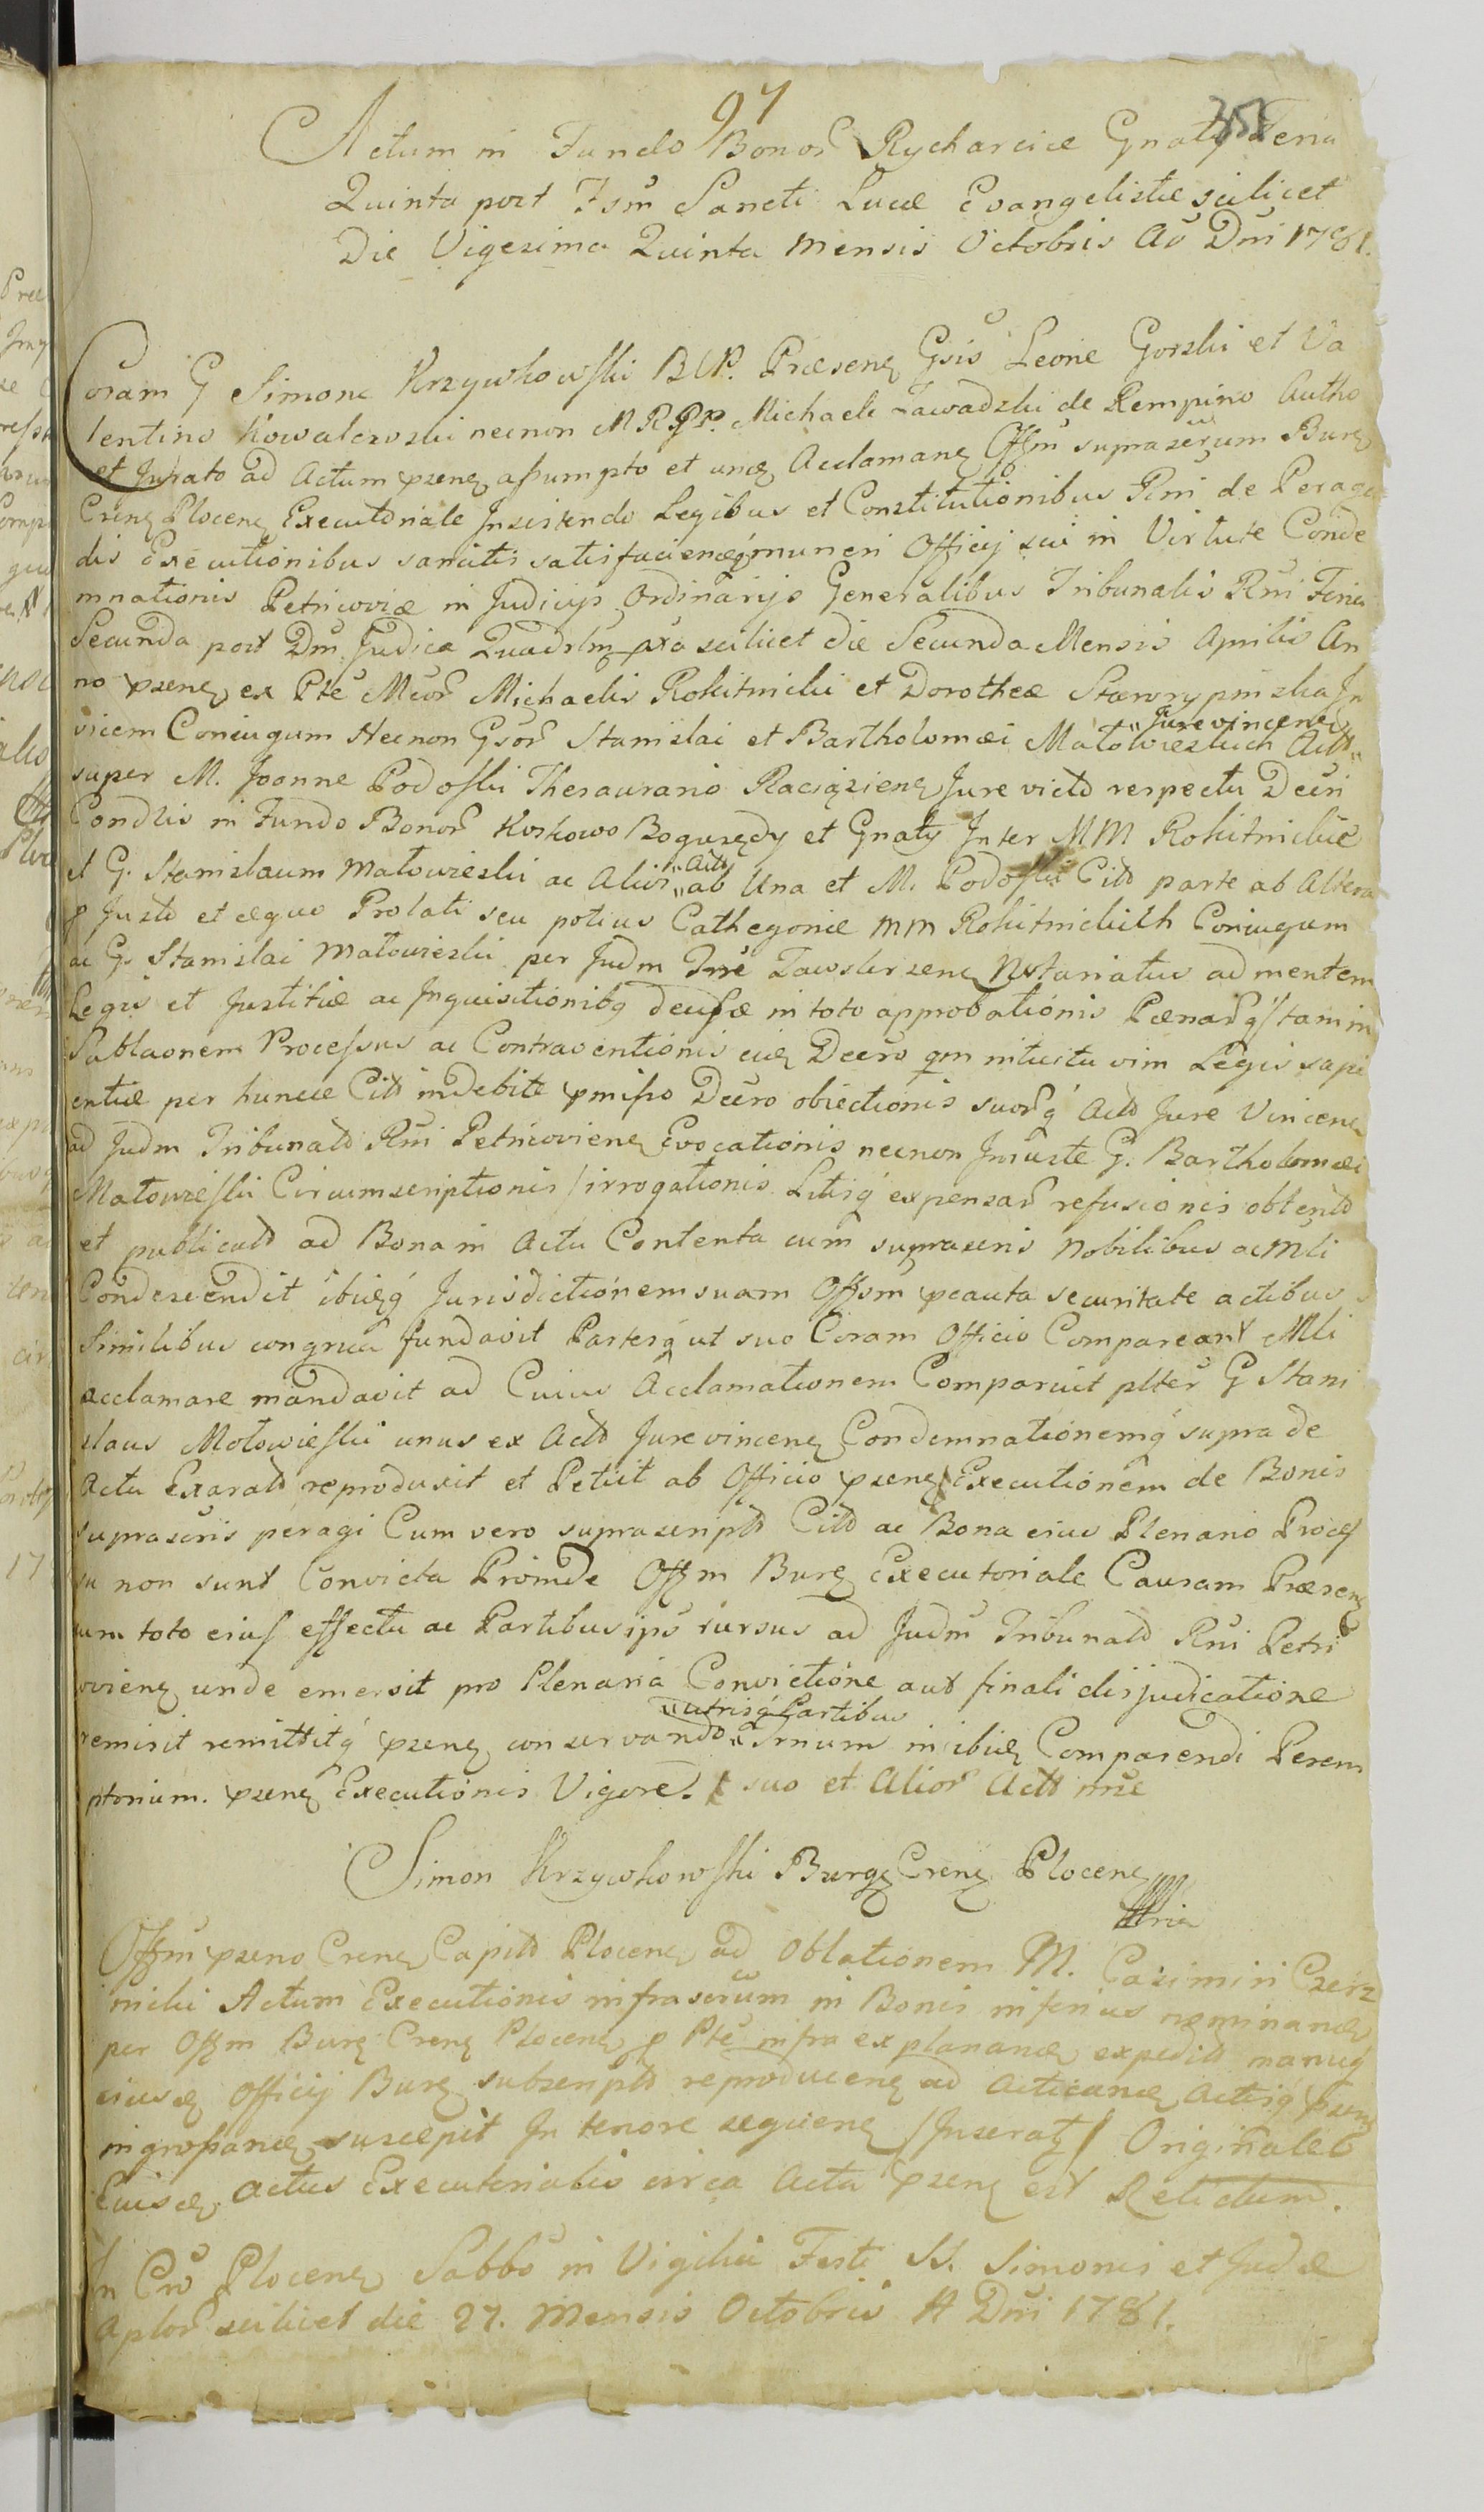 97
358
Actum in Fundo Bonor Rycharcice Gnaty Feria
Quinta post Fsm Sancti Lucæ Evangelistæ scilicet
Die Vigesima Quinta Mensis Octobris Ao Dni 1781.
Coram G Simone Krzywkowski B P. Præsenę Gsis Leone Gorski et Va
lentino Kowalczoski necnon M R P. Michaele Zawadzki de Rempino Autho
et Jurato ad Actum psenę assumpto et unę Acclamanę Offm suprascrum Burę
Crenę Plocenę Executoriale Insistendo Legibus et Constitutionibus Rni de Peragen
dis Executionibus sancitis satisfaciendęq muneri Officij sui in Virtute Conde
mnationis Petricoviæ in Judicijs Ordinarijs Generalibus Tribunalis Rni Feria
Secunda post Dm Judica Quadrlm pxa scilicet die Secunda Mensis Aprilis An
no psenę ex Pte Mcor Michaelis Rokitnicki et Dorotheæ Skwrypinska In
vicem Coniugum Necnon Gsor Stanislai et Bartholomæi Matowieskich "Jurevincenę" Actt
super M. Joanne Podoski Thesaurario Raciązienę Jure victo respectu Decri
Condlis in Fundo Bonor Koskowo Bogurzędy et Gnaty Inter MM Rokitnickie
et G. Stanislaum Matowieski ac Alios "Actt" ab Una et M. Podoski Citt parte ab Altera
p Justo et æquo Prolati seu potius Cathegoriæ MM Rokitnickich Coniugum
ac G. Stanislai Matowieski per Judm Trre Zawskrzenę Notariatus ad mentem
Legis et Justitiæ ac Inquisitionibq deussæ in toto approbationis Pænarq stam in
Sublaonem Processus ac Contraventionis eiuę Decro qm intuitu vim Legis sapi
entiæ per huncce Citt indebite pmisso Decro obiectionis suorq Actt Jure Vincenę
ad Judm Tribunald Rni Petricovienę Evocationis necnon Iniuste G. Bartholomæi
Matowieski Circumscriptionis irrogationis Litisq expensar refusionis obtentd
et publicatd ad Bona in Actu Contenta cum suprascris Nobilibus ac Mli
Condescendit ibiuęq Jurisdictionem suam Offsm pcauta securitate actibus
Similibus congrua fundavit Partesq ut suo Coram Officio Compareant Mli
acclamare mandavit ad Cuius Acclamationem Comparuit plter G Stani
slaus Motowieski unus ex Actt Jurevincenę Condemnationemq supra de
Actu Exaratd reproduxit et Petiit ab Officio psenę Executionem de Bonis
suprascris peragi Cum vero suprascriptd Citt ac Bona eius Plenario Proces
su non sunt Convicta Proinde Offm Burę Executoriale Causam Præsenę
cum toto eius effectu ac Partibus ips rursus ad Judm Tribunald Rni Petri
covienę unde emersit pro Plenaria Convictione aut finali disjudicatione
remisit remittitq psenę conservando "utrisq Partibus" Trnum inibiuę Comparendi Perem
ptorium. psenę Executionis Vigore. suo et Alior Actt nne
Simon Krzywkowski Burgę Crenę Plocenę
Offm pseno Crenę Capitt Plocenę ad Oblationem M. Casimiri Czerz
nicki Actum Executionis infrascrum in Bonis inferius nominanę
per Offm Burę Crenę Plocenę p Pte infra explananę expeditt manuq
eiusdę Officij Burę subscriptd reproducenę ad Acticanę Actisq psenę
ingrossanę suscepit In tenore sequenę (Inseraty) Originale
Eiusdę Actus Executorialis circa Acta psenę est Relictum.
In Cro Plocenę Sabbo in Vigilia Festi SS. Simonis et Judæ
Aplor scilicet die 27. Mensis Octobris A Dni 1781.